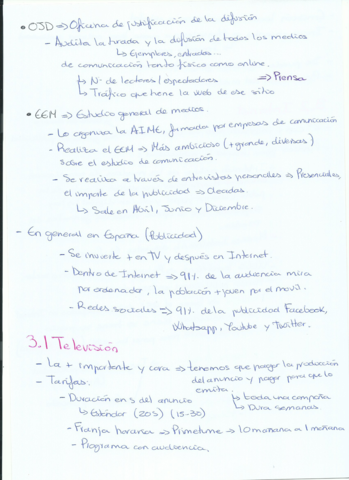 • OJD => Oficina de justificación de la difusión
- Audita la tirada y la difusión de todos los medios
↳ Ejemplares, entradas...
de comunicación tanto físico como online.
↳ Nº de lectores/espectadores => Prensa
↳ Tráfico que tiene la web de ese sitio
• EGM => Estudio general de medios.
- Lo organiza la AIMC, formada por empresas de comunicación
- Realiza el EGM => Más ambicioso (+ grande, diversas)
sobre el estudio de comunicación.
- Se realiza a través de entrevistas personales => Presenciales,
el importe de la publicidad => Oleadas.
↳ Sale en Abril, Junio y Diciembre.
- En general en España (Publicidad)
- Se invierte + en TV y después en Internet.
- Dentro de Internet => 91% de la audiencia mira
por ordenador, la población + joven por el movil.
- Redes sociales => 91% de la publicidad Facebook,
Whatsapp, Youtube y Twitter.
3.1 Televisión
- La + importante y cara => tenemos que pagar la producción
del anuncio y pagar para que lo
emita.
- Tarifas:
- Duración en s del anuncio
↳ toda una campaña
↳ Dura semanas
↳ Estándar (20s) (15-30)
- Franja horaria => Primetime => 10 mañana a 1 mañana
- Programa con audiencia.